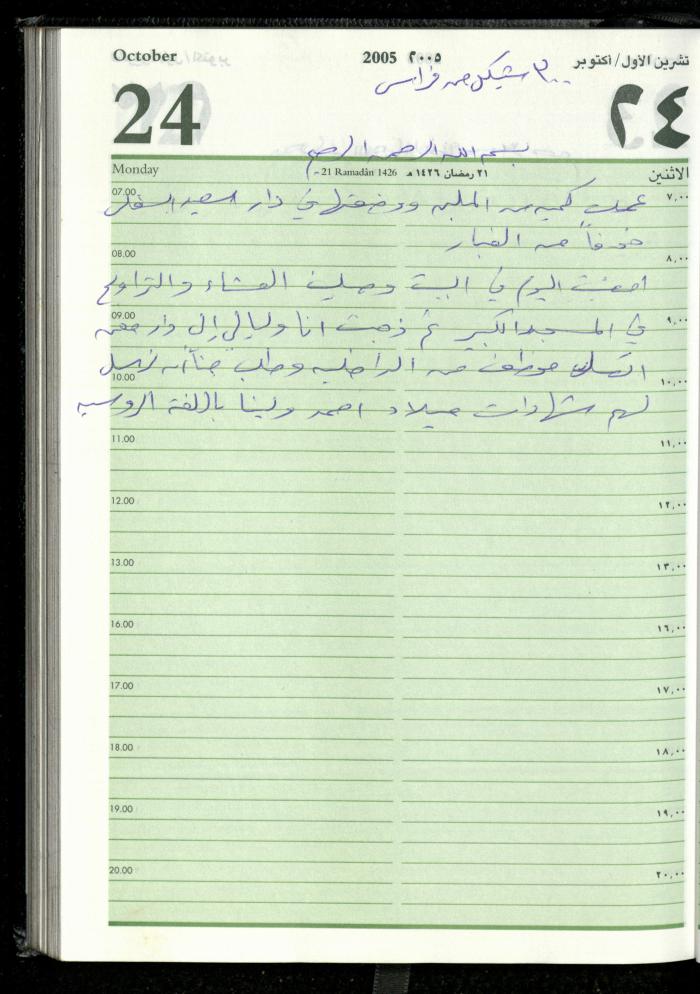 October 2005 ٢٠٠٥ تشرين الأول/أكتوبر
٣٠٠ شيكل من فراس
24 ٢٤
بسم الله الرحمن الرحيم
Monday 21 Ramadân 1426 - ٢١ رمضان ١٤٢٦ هـ الاثنين
07.00 ٧,٠٠
عملت كمية من الملبن ووضعتها في دار السفلى
خوفاً من الغبار
08.00 ٨,٠٠
امضيت اليوم في البيت وصليت العشاء والتراويح
09.00 ٩,٠٠
في المسجد الكبير ثم ذهبت انا وليالي إلى دار
اتصل موظف من الداخلية وطلب منا أن نرسل
10.00 ١٠,٠٠
لهم شهادات ميلاد احمد ولينا باللغة الروسيه
11.00 ١١,٠٠
12.00 ١٢,٠٠
13.00 ١٣,٠٠
16.00 ١٦,٠٠
17.00 ١٧,٠٠
18.00 ١٨,٠٠
19.00 ١٩,٠٠
20.00 ٢٠,٠٠